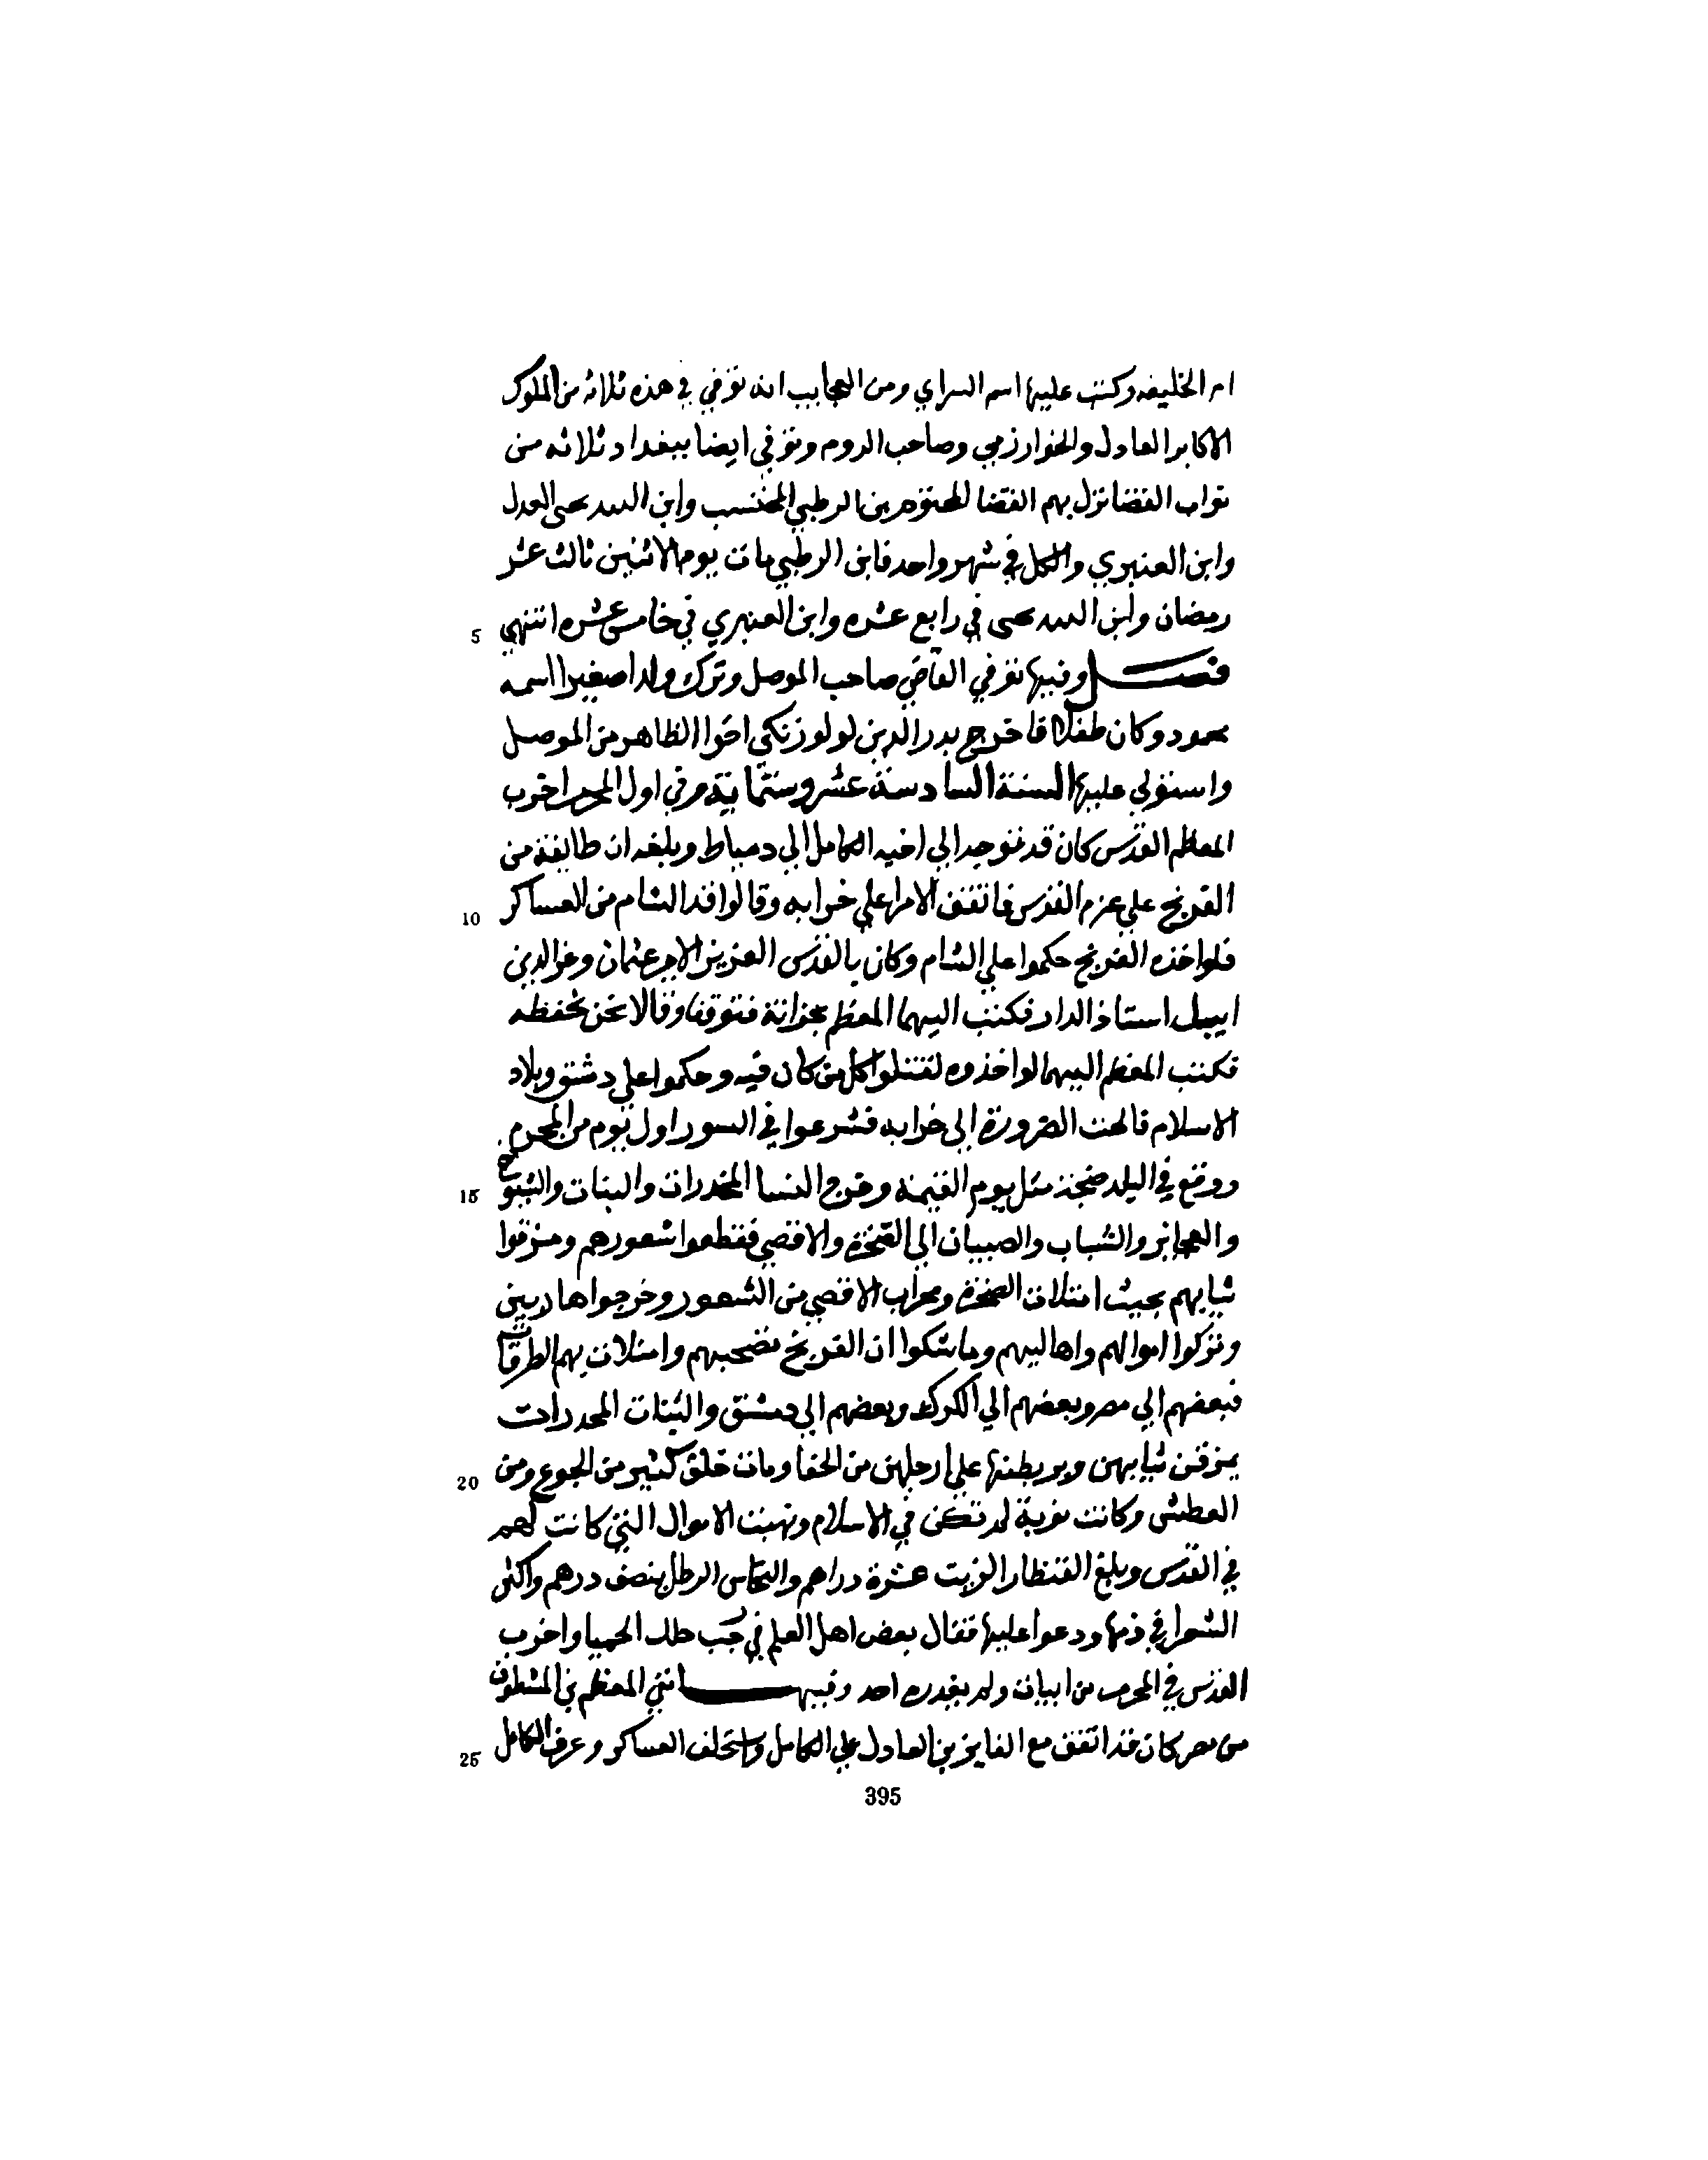 ام الخليفه وكتب عليها اسم السراي ومن العجايب انه توفي في هذه ثلاثه من الملوك
الاكابر العادل والخوارزمي وصاحب الروم وتوفي ايضا ببغداد ثلاثه من
نواب القضا نزل بهم القضا المحتوم بن الرطبي المحتسب وابن يحيى العدل
وابن العنبري والكل في شهر واحد فابن الرطبي مات يوم الاثنين ثالث عشر
رمضان وابن يحيى في رابع عشره وابن العنبري في خامس عشره انتهي 5
فصل وفيها توفي القاضي صاحب الموصل وترك ولدا صغيرا اسمه
محمود وكان طفلا فاخرج بدر الدين لولو زنكي اخوا الظاهر من الموصل
واستولي عليها السنة السادسة عشر وستماية وفي اول المحرم اخرب
المعظم القدس كان قد توجه الي اخيه الكامل الي دمياط وبلغه ان طايفة من
الفرنج علي عزم القدس فاتفق الامرا علي خرابه وقالوا قد الشام من العساكر 10
فلو اخذه الفرنج حكموا علي الشام وكان بالقدس العزيز الامير عثمان وعز الدين
ايبك استاذ الدار فكتب اليهما المعظم بخرابة فتوقفا وقالا نحن نحفظه
فكتب المعظم اليهما لو اخذوه لقتلوا كل من كان فيه وحكموا علي دمشق وبلاد
الاسلام فالجت الضرورة الي خرابه فشرعوا في السور اول يوم من المحرم
ووقع في البلد ضجة مثل يوم القيمة وخرج النسا المخدرات والبنات والشيوخ 15
والعجايز والشباب والصبيان الي الصخرة والاقصي فقطعوا شعورهم ومزقوا
ثيابهم بحيث امتلات الصخرة ومحراب الاقصي من الشعور وخرجوا هاربين
وتركوا اموالهم واهاليهم وما شكوا ان الفرنج تصحبهم وامتلات بهم الطرقات
فبعضهم الي مصر وبعضهم الي الكرك وبعضهم الي دمشق والبنات المخدرات
يمزقن ثيابهن ويربطنها علي ارجلهن من الحفا ومات خلق كثير من الجوع ومن 20
العطش وكانت نوبة لم تكن في الاسلام ونهبت الاموال التي كانت لهم
في القدس وبلغ القنطار الزيت عشرة دراهم والنحاس الرطل بنصف درهم واكثر
الشعرا في ذمها ودعوا عليها فقال بعض اهل العلم في حلل الحميا واخرب
القدس في المحرم من ابيات ولم يقدره احد وفيها نفي المعظم بن المشطوب
من مصر كان قد اتفق مع الفايز بن العادل علي الكامل واستحلف العساكر وعرف الكامل 25
395